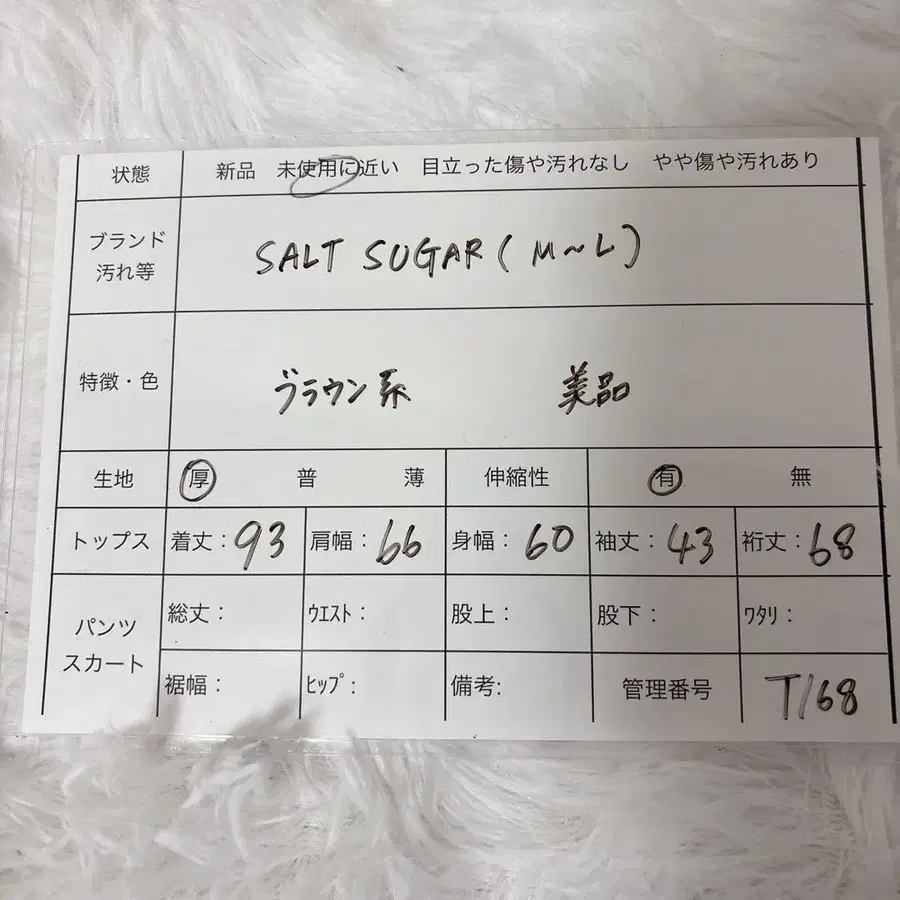 状態 新品 未使用に近い 目立った傷や汚れなし やや傷や汚れあり
ブランド
汚れ等
SALT SUGAR (M~L)
特徴・色 ブラウン系 美品
生地 厚 普 薄 伸縮性 有 無
トップス 着丈:93 肩幅:66 身幅:60 袖丈:43 裄丈:68
パンツ
スカート
総丈: ｳｴｽﾄ: 股上: 股下: ﾜﾀﾘ:
裾幅: ﾋｯﾌﾟ: 備考: 管理番号 T168